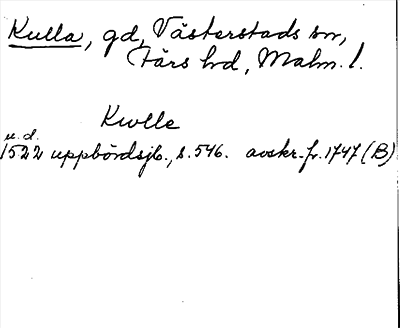 Kulla, gd, Västerstads sn,
Färs hd, Malm. l.
Kwlle
u.d.
1522 uppbördsjb., s. 546. avskr. fr. 1747 (B)